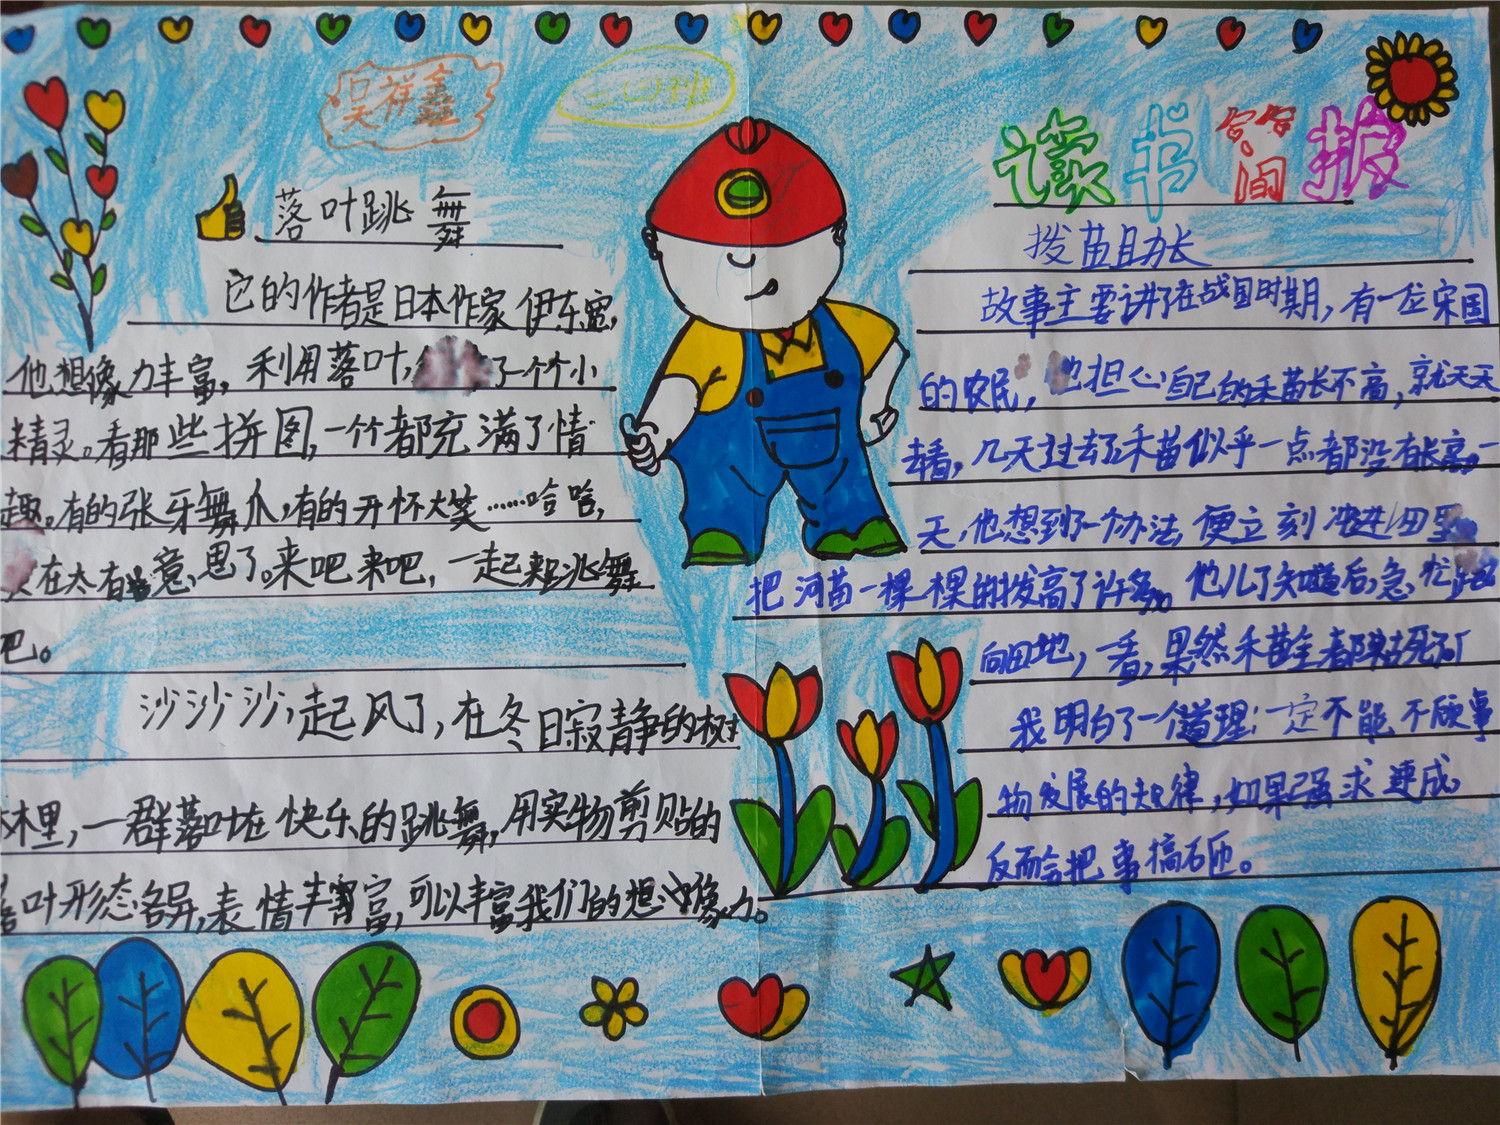 吴祥鑫
读书简报
落叶跳舞
它的作者是日本作家伊东宽,
他想像力丰富,利用落叶,了一个个小
精灵。看那些拼图,一个个都充满了情
趣。有的张牙舞爪,有的开怀大笑……哈哈,
在太有意思了。来吧来吧,一起来跳舞
吧。
沙沙沙,起风了,在冬日寂静的树
木里,一群落叶在快乐的跳舞,用实物剪贴的
落叶形态各异,表情丰富,可以丰富我们的想像力。
拨苗助长
故事主要讲了在战国时期,有一位宋国
的农民,他担心自己的禾苗长不高,就天天
去看,几天过去了禾苗似乎一点都没有长高,一
天,他想到了一个办法,便立刻冲进田里
把河苗一棵棵的拨高了许多。他儿子知道后,急忙跑
向田地,一看,果然禾苗全都枯死了
我明白了一个道理:一定不能不顾事
物发展的规律,如果强求速成,
反而会把事搞砸。